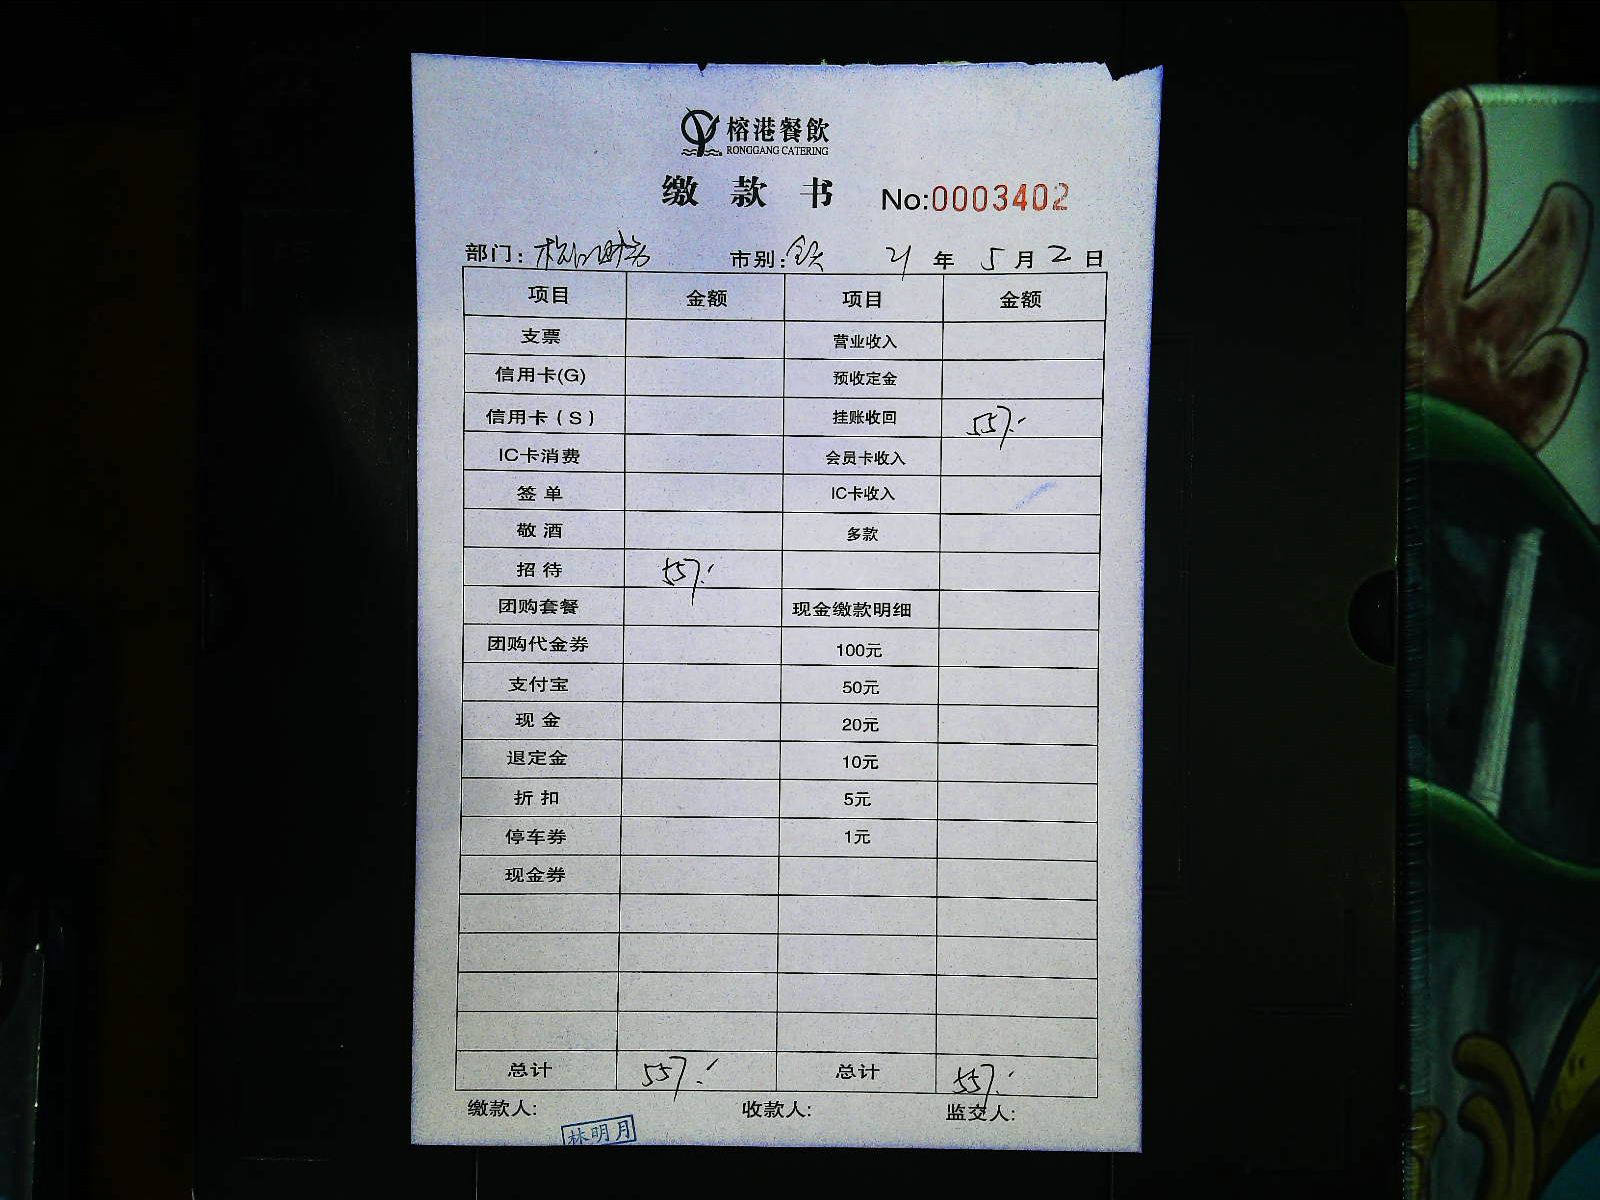 榕港餐飲
RONGGANG CATERING
缴 款 书 No:0003402
部门: 市别: 21 年 5 月 2 日
项目 金额 项目 金额
支票 营业收入
信用卡(G) 预收定金
信用卡(S) 挂账收回 557.-
IC卡消费 会员卡收入
签单 IC卡收入
敬酒 多款
招待 557.-
团购套餐 现金缴款明细
团购代金券 100元
支付宝 50元
现金 20元
退定金 10元
折扣 5元
停车券 1元
现金券
总计 557.- 总计 557.-
缴款人: 收款人: 监交人:
林明月